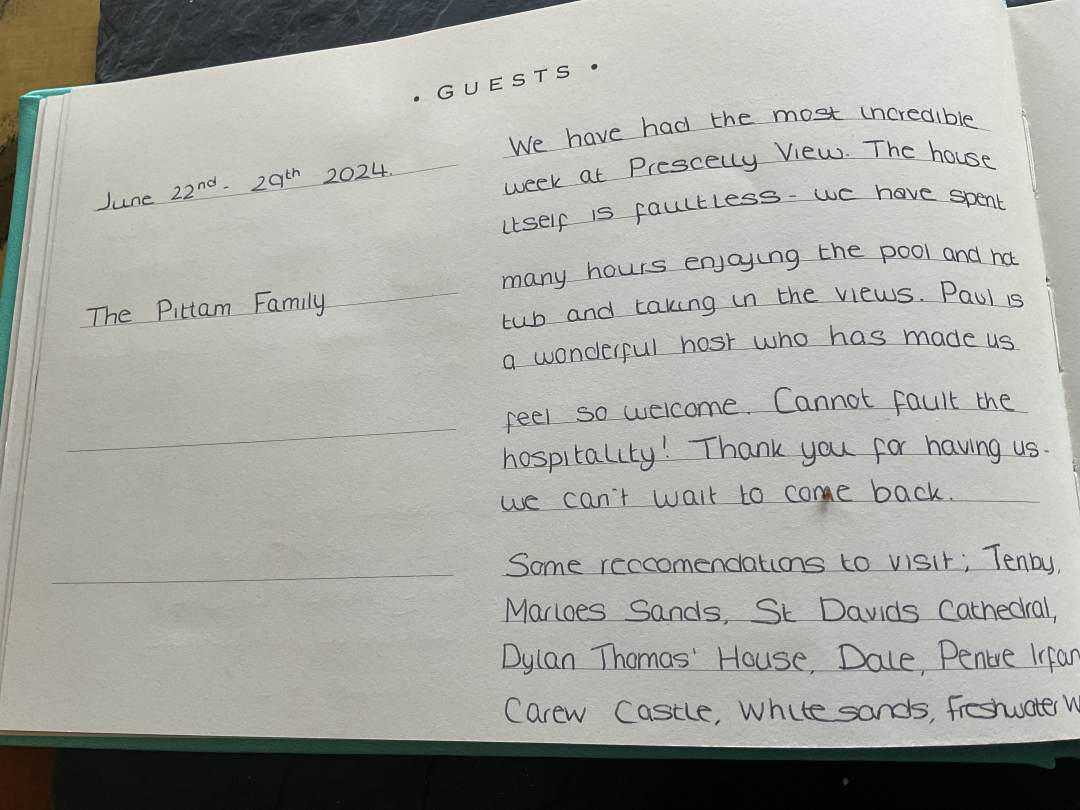 • GUESTS •
June 22nd - 29th 2024.
The Pittam Family
We have had the most incredible
week at Prescelly View. The house
itself is faultless - we have spent
many hours enjoying the pool and hot
tub and taking in the views. Paul is
a wonderful host who has made us
feel so welcome. Cannot fault the
hospitality! Thank you for having us.
we can't wait to come back.
Some reccomendations to visit; Tenby,
Marloes Sands, St Davids Cathedral,
Dylan Thomas' House, Dale, Pentre Ifan
Carew Castle, Whitesands, freshwater W